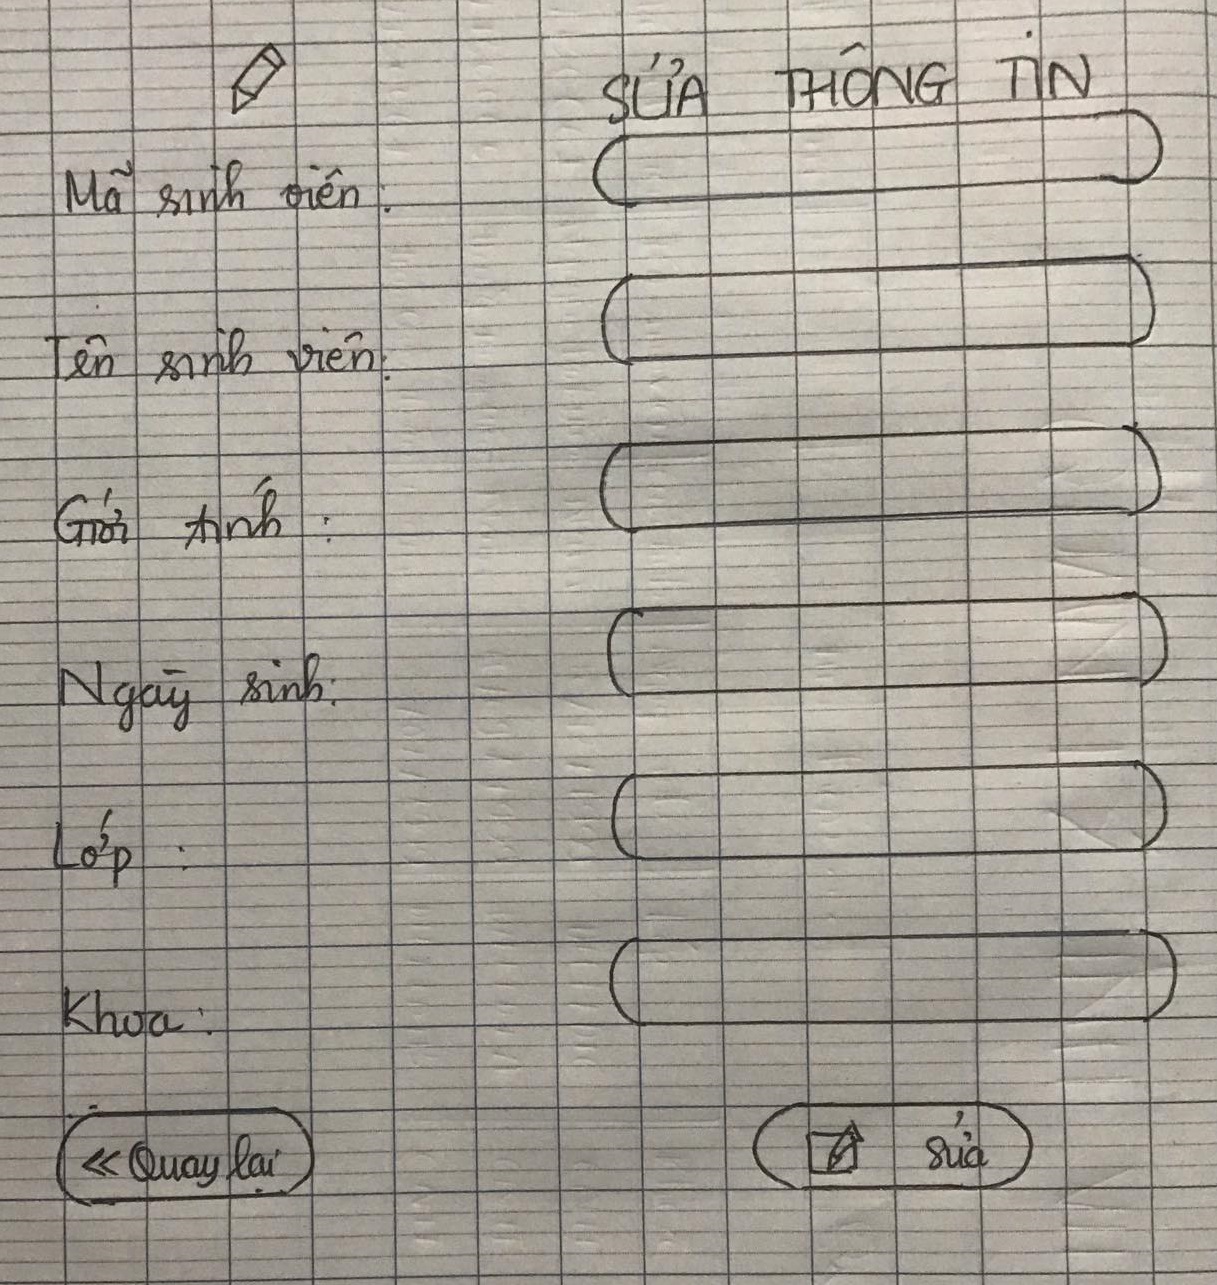 SỬA THÔNG TIN
Mã sinh viên:
Tên sinh viên:
Giới tính:
Ngày sinh:
Lớp:
Khoa:
<< Quay lại
sửa